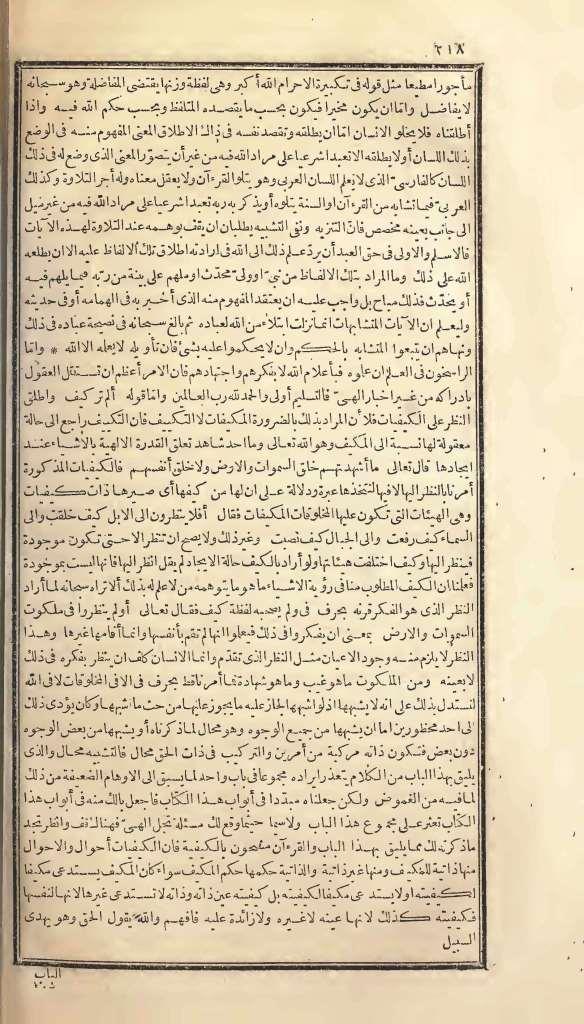 ٢١٨
مأجورا مطيعا مثل قوله فى تكبيرة الاحرام الله أكبر وهى لفظة وزنها يقتضى المفاضلة وهو سبحانه
لا يفاضل واما ان يكون مخبرا فيكون بحسب ما يقصده المتلفظ وبحسب حكم الله فيه واذا
أطلقناه فلا يخلو الانسان اما ان يطلقه وتقصد نفسه فى ذلك الاطلاق المعنى المفهوم منه فى الوضع
بذلك اللسان أو لا يطلقه الا تعبدا شرعيا على مراد الله فيه من غير أن يتصوّر المعنى الذى وضع له فى ذلك
اللسان كالفارسىّ الذى لا يعلم اللسان العربى وهو يتلو القرءآن ولا يعقل معناه وله أجر التلاوة وكذلك
العربىّ فيما تشابه من القرءآن والسنة يتلوه أو يذكر به ربه تعبدا شرعيا على مراد الله فيه من غير ميل
الى جانب بعينه مخصص فانّ التنزيه ونفى التشبيه يطلبان ان يقف بوهمه عند التلاوة لهذه الآيات
فالاسلم والاولى فى حق العبد أن يردّ علم ذلك الى الله فى ارادته اطلاق تلك الالفاظ عليه الا ان يطلعه
الله على ذلك وما المراد بتلك الالفاظ من نبىّ أو ولىّ محدّث أو ملهم على بينة من ربه فيما يلهم فيه
أو يحدّث فذلك مباح بل واجب عليه ان يعتقد المفهوم منه الذى أخبر به فى الهامه أو فى حديثه
وليعلم ان الآيات المتشابهات انما نزلت ابتلاء من الله لعباده ثم بالغ سبحانه فى نصيحة عباده فى ذلك
ونهاهم ان يتبعوا المتشابه بالحكم وان لا يحكموا عليه بشئ فان تأويله لا يعلمه الا الله * واما
الراسخون فى العلم ان علموه فبأعلام الله لا بفكرهم واجتهادهم فان الامر أعظم ان تستقل العقول
بادراكه من غير اخبار الهىّ فالتسليم أولى والحمد لله رب العالمين واما قوله ألم تر كيف واطلق
النظر على الكيفيات فلأن المراد بذلك بالضرورة المكيفات لا التكييف فان التكييف راجع الى حالة
معقولة لها نسبة الى المكيف وهو الله تعالى وما احد شاهد تعلق القدرة الالهية بالاشياء عند
ايجادها قال تعالى ما أشهدتهم خلق السموات والارض ولا خلق أنفسهم فالكيفيات المذكورة
أمرنا بالنظر اليها لا فيها لنتخذها عبرة ودلالة على ان لها من كيفها أى صيرها ذات كيفيات
وهى الهيئات التى تكون عليها المخلوقات المكيفات فقال أفلا ينظرون الى الابل كيف خلقت والى
السماء كيف رفعت والى الجبال كيف نصبت وغير ذلك ولا يصح ان تنظر الا حتى تكون موجودة
فننظر اليها وكيف اختلفت هيئاتها ولو أراد بالكيف حالة الايجاد لم يقل انظر اليها فانها ليست بموجودة
فعلمنا ان الكيف المطلوب منا فى رؤية الاشياء ما هو ما يتوهمه من لا علم له بذلك ألا تراه سبحانه لما أراد
النظر الذى هو الفكر قرنه بحرف فى ولم يصحبه لفظة كيف فقال تعالى أولم ينظروا فى ملكوت
السموات والارض بمعنى ان يفكروا فى ذلك فيعلموا انها لم تقم بأنفسها وانما أقامها غيرها وهذا
النظر لا يلزم منه وجود الاعيان مثل النظر الذى تقدّم وانما الانسان كلف ان ينظر بفكره فى ذلك
لا بعينه ومن الملكوت ما هو غيب وما هو شهادة فما أمرنا قط بحرف فى الا فى المخلوقات لا فى الله
لنستدل بذلك على انه لا يشبهها اذ لو اشبهها لجاز عليه ما يجوز عليها من حيث ما اشبهها وكان يؤدى ذلك
الى احد محظورين اما ان يشبهها من جميع الوجوه وهو محال لما ذكرناه أو يشبهها من بعض الوجوه
دون بعض فتكون ذاته مركبة من أمرين والتركيب فى ذات الحق محال فالتشبيه محال والذى
يليق بهذا الباب من الكلام يتعذر ايراده مجموعا فى باب واحد لما يسبق الى الاوهام الضعيفة من ذلك
لما فيه من الغموض ولكن جعلناه مبددا فى أبواب هذا الكتاب فاجعل بالك منه فى أبواب هذا
الكتاب تعثر على مجموع هذا الباب ولا سيما حيثما وقع لك مسئلة تجل الهىّ فهناك قف وانظر تجد
ما ذكرته لك مما يليق بهذا الباب والقرءآن مشحون بالكيفية فان الكيفيات أحوال والاحوال
منها ذاتية للمكيف ومنها غير ذاتية والذاتية حكمها حكم المكيف سواء كان المكيف يستدعى مكيفا
لكيفيته أو لا يستدعى مكيفا لكيفيته بل كيفيته عين ذاته وذاته لا تستدعى غيرها لانها لنفسها
فكيفيته كذلك لانها عينه لا غيره ولا زائدة عليه فافهم والله يقول الحق وهو يهدى
السبيل
الباب